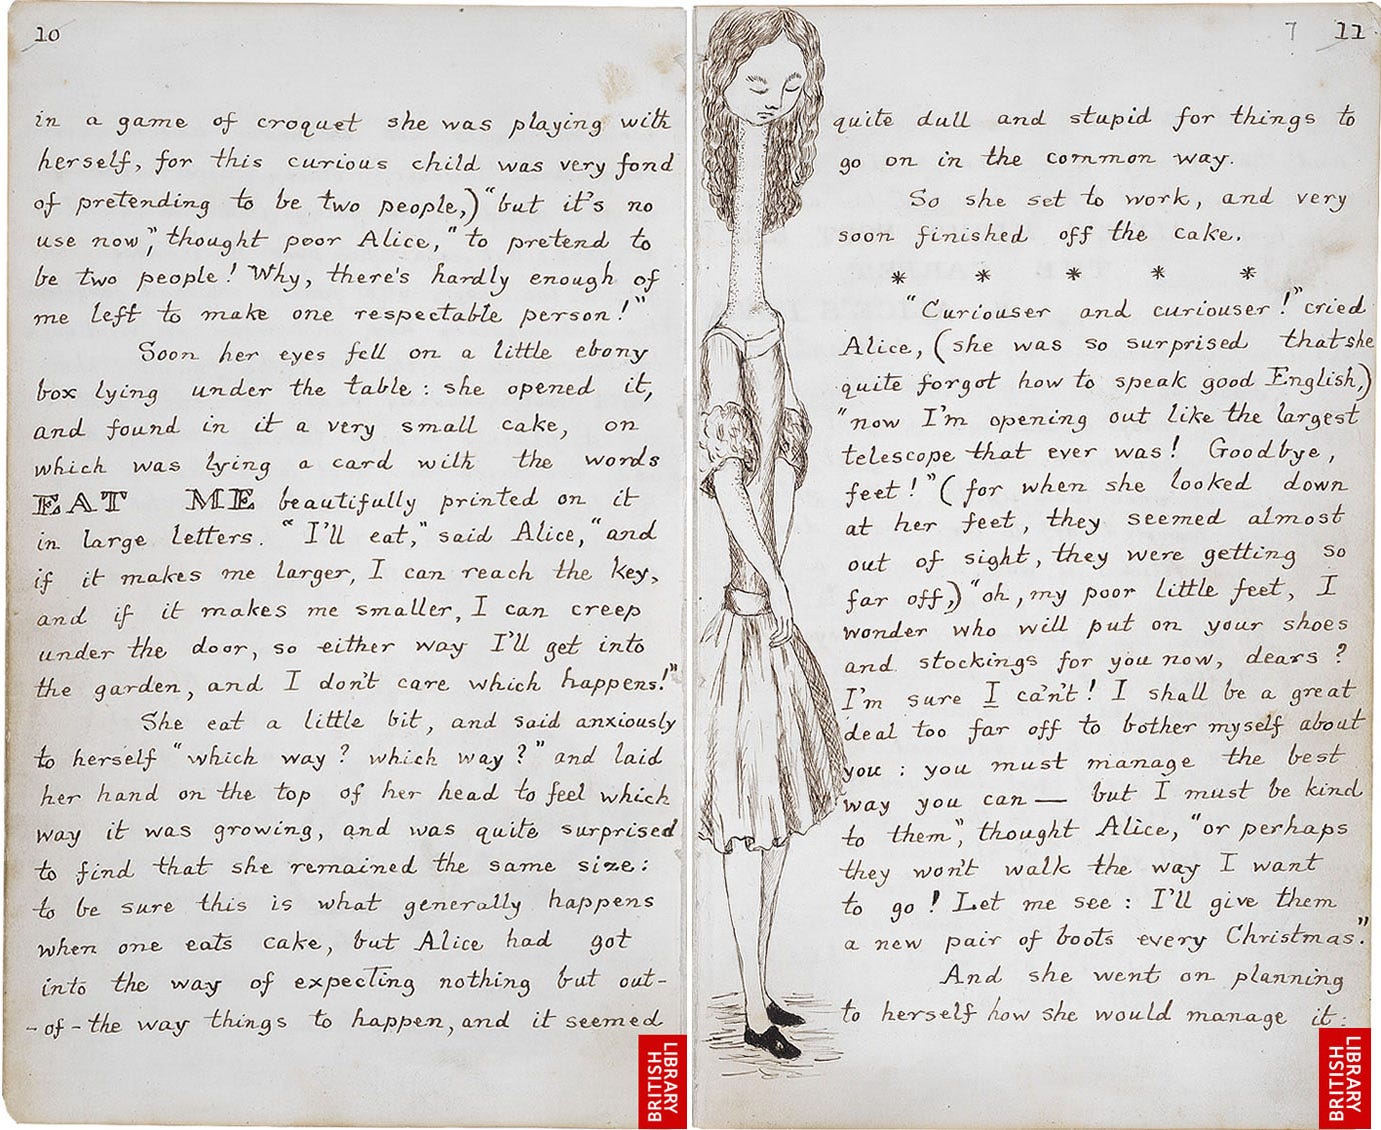 10
in a game of croquet she was playing with
herself, for this curious child was very fond
of pretending to be two people,) "but it's no
use now", thought poor Alice, "to pretend to
be two people! Why, there's hardly enough of
me left to make one respectable person!"
Soon her eyes fell on a little ebony
box lying under the table: she opened it,
and found in it a very small cake, on
which was lying a card with the words
EAT ME beautifully printed on it
in large letters. "I'll eat," said Alice, "and
if it makes me larger, I can reach the key,
and if it makes me smaller, I can creep
under the door, so either way I'll get into
the garden, and I don't care which happens!"
She eat a little bit, and said anxiously
to herself "which way? which way?" and laid
her hand on the top of her head to feel which
way it was growing, and was quite surprised
to find that she remained the same size:
to be sure this is what generally happens
when one eats cake, but Alice had got
into the way of expecting nothing but out-
-of-the way things to happen, and it seemed
BRITISH
LIBRARY
7 11
quite dull and stupid for things to
go on in the common way.
So she set to work, and very
soon finished off the cake.
* * * * *
"Curiouser and curiouser!" cried
Alice, (she was so surprised that she
quite forgot how to speak good English,)
"now I'm opening out like the largest
telescope that ever was! Goodbye,
feet!" (for when she looked down
at her feet, they seemed almost
out of sight, they were getting so
far off,) "oh, my poor little feet, I
wonder who will put on your shoes
and stockings for you now, dears?
I'm sure I ca'n't! I shall be a great
deal too far off to bother myself about
you: you must manage the best
way you can — but I must be kind
to them", thought Alice, "or perhaps
they won't walk the way I want
to go! Let me see: I'll give them
a new pair of boots every Christmas."
And she went on planning
to herself how she would manage it:
BRITISH
LIBRARY